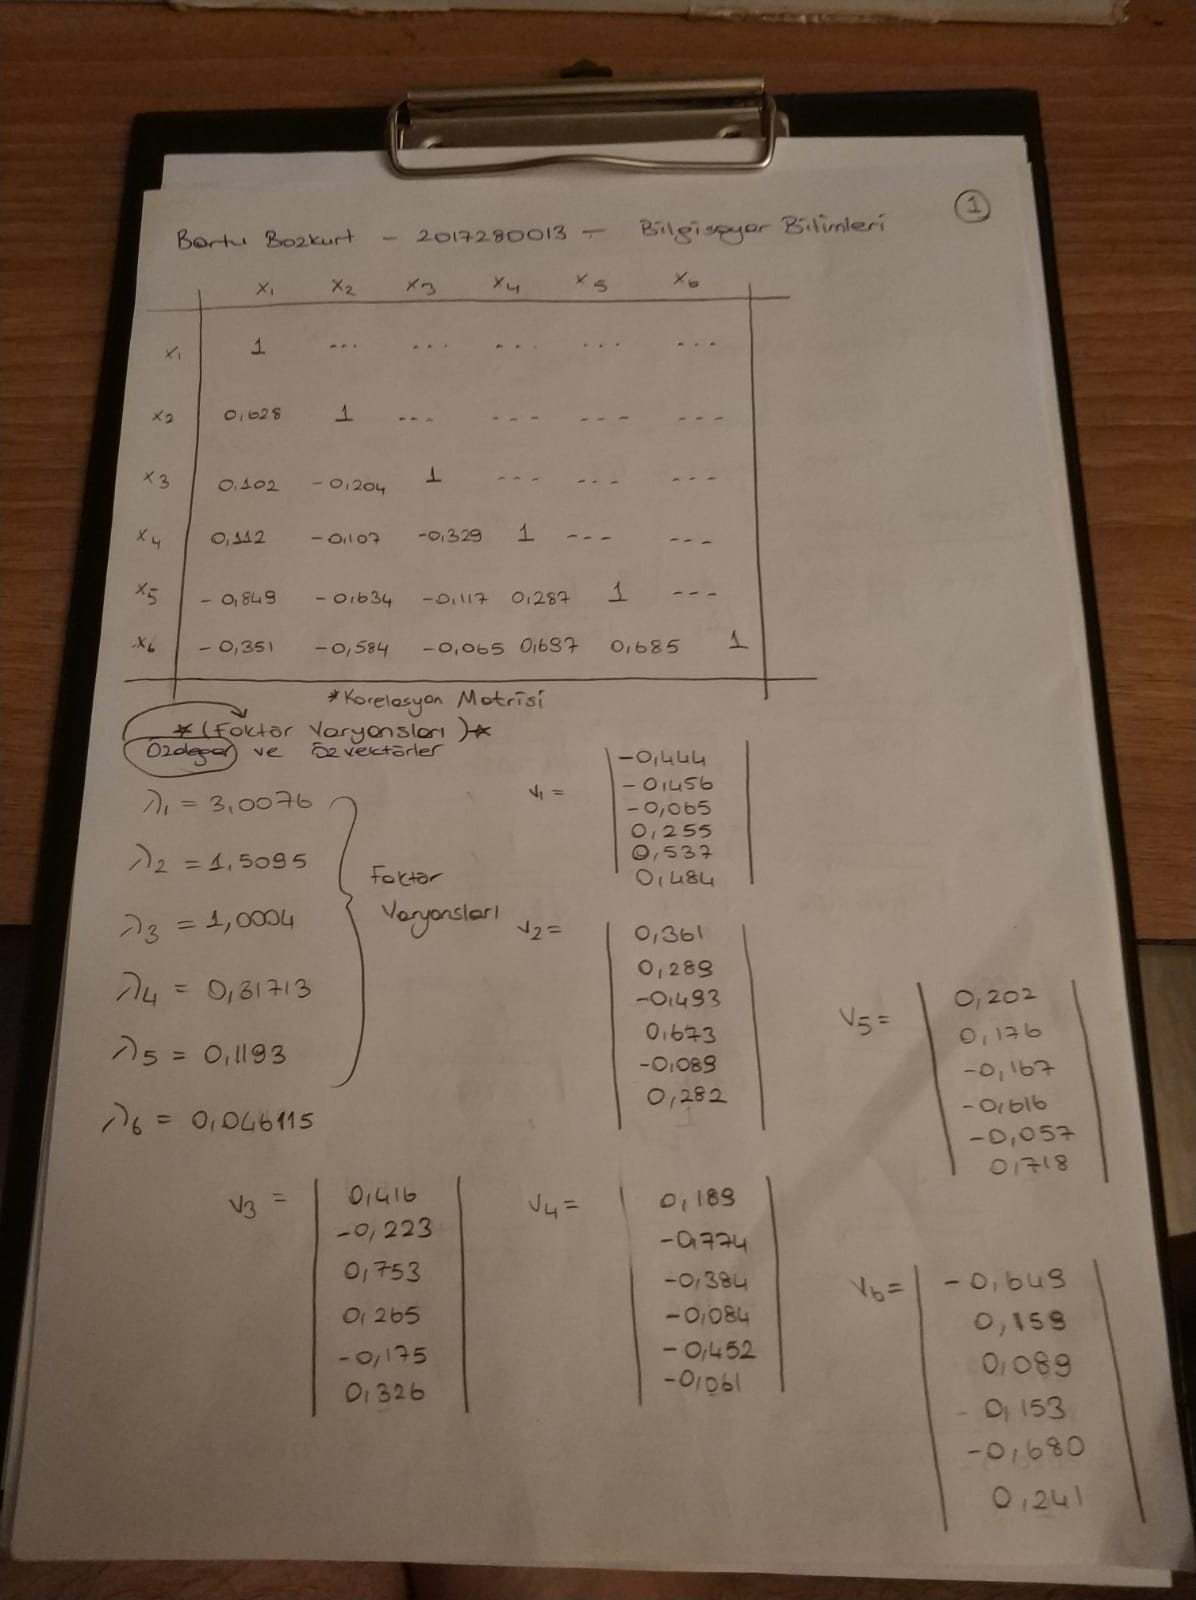 1
Bartu Bozkurt - 2017280013 - Bilgisayar Bilimleri
x1 x2 x3 x4 x5 x6
x1 1 --- --- --- --- ---
x2 0,628 1 --- --- --- ---
x3 0,102 -0,204 1 --- --- ---
x4 0,112 -0,107 -0,329 1 --- ---
x5 -0,849 -0,634 -0,117 0,287 1 ---
x6 -0,351 -0,584 -0,065 0,697 0,685 1
*Korelasyon Matrisi
*(Faktör Varyansları)*
Özdeğer ve Özvektörler
λ1 = 3,0076
λ2 = 1,5095
λ3 = 1,0004
λ4 = 0,31713
λ5 = 0,1193
λ6 = 0,046115
Faktör
Varyansları
v1 =
-0,444
-0,456
-0,065
0,255
0,537
0,484
v2 =
0,361
0,289
-0,493
0,673
-0,089
0,282
v3 =
0,416
-0,223
0,753
0,265
-0,175
0,326
v4 =
0,189
-0,774
-0,384
-0,084
-0,452
-0,061
v5 =
0,202
0,176
-0,167
-0,616
-0,057
0,718
v6 =
-0,649
0,159
0,089
0,153
-0,680
0,241